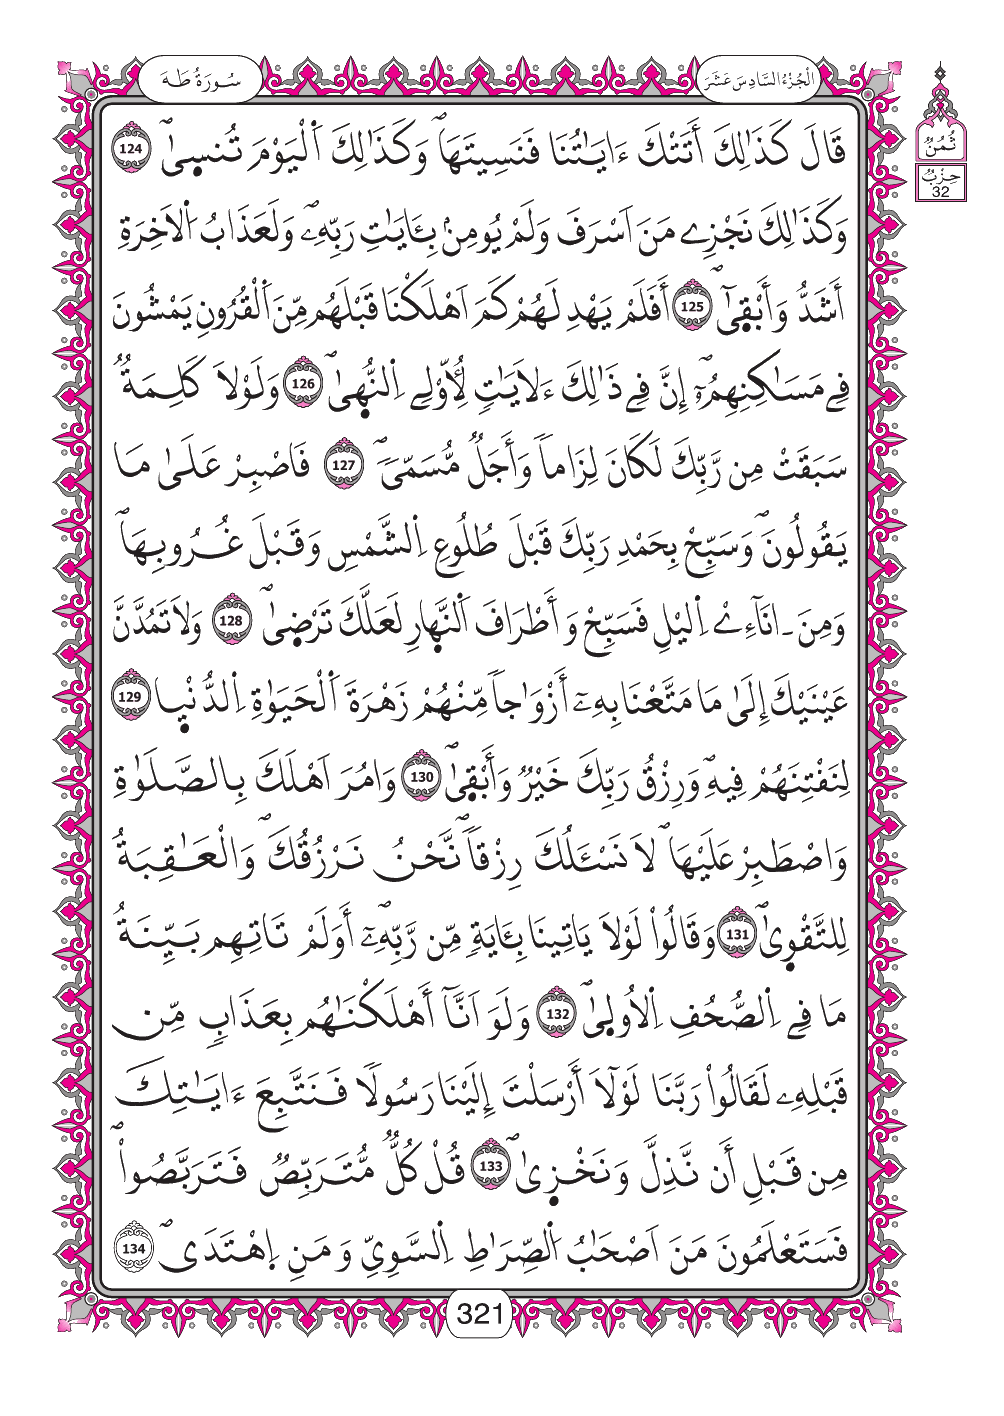 سُورَةُ طَهَ
اَلْجُزْءُ السَّادِسَ عَشَرَ
ثُمُنُ
حِزْبُ
32
قَالَ كَذَٰلِكَ أَتَتْكَ ءَايَٰتُنَا فَنَسِيتَهَاۖ وَكَذَٰلِكَ اَ۬لْيَوْمَ تُنس۪يٰۖ 124
وَكَذَٰلِكَ نَجْزِے مَنَ اَسْرَفَ وَلَمْ يُومِنۢ بِـَٔايَٰتِ رَبِّهِۦۖ وَلَعَذَابُ اُ۬لَاخِرَةِ
أَشَدُّ وَأَبْق۪يٰٓۖ 125 أَفَلَمْ يَهْدِ لَهُمْ كَمَ اَهْلَكْنَا قَبْلَهُم مِّنَ اَ۬لْقُرُونِ يَمْشُونَ
فِے مَسَٰكِنِهِمُۥٓۖ إِنَّ فِے ذَٰلِكَ ءَلَايَٰتٖ لُِّأوْلِے اِ۬لنُّه۪يٰۖ 126 وَلَوْلَا كَلِمَةٞ
سَبَقَتْ مِن رَّبِّكَ لَكَانَ لِزَاماٗ وَأَجَلٞ مُّسَمّيٗۖ 127 فَاصْبِرْ عَلَىٰ مَا
يَقُولُونَۖ وَسَبِّحْ بِحَمْدِ رَبِّكَ قَبْلَ طُلُوعِ اِ۬لشَّمْسِ وَقَبْلَ غُرُوبِهَاۖ
وَمِنَ ـ انَآءِےْ اِ۬ليْلِ فَسَبِّحْ وَأَطْرَافَ اَ۬لنَّه۪ارِ لَعَلَّكَ تَرْض۪يٰۖ 128 وَلَا تَمُدَّنَّ
عَيْنَيْكَ إِلَىٰ مَا مَتَّعْنَا بِهِۦٓ أَزْوَٰجاٗ مِّنْهُمْ زَهْرَةَ اَ۬لْحَيَوٰةِ اِ۬لدُّنْي۪ا 129
لِنَفْتِنَهُمْ فِيهِۖ وَرِزْقُ رَبِّكَ خَيْرٞ وَأَبْق۪يٰۖ 130 وَامُرَ اَهْلَكَ بِالصَّلَوٰةِ
وَاصْطَبِرْ عَلَيْهَاۖ لَا نَسْـَٔلُكَ رِزْقاٗۖ نَّحْنُ نَرْزُقُكَۖ وَالْعَٰقِبَةُ
لِلتَّقْو۪يٰۖ 131 وَقَالُواْ لَوْلَا يَاتِينَا بِـَٔايَةٖ مِّن رَّبِّهِۦٓۖ أَوَلَمْ تَاتِهِم بَيِّنَةُ
مَا فِے اِ۬لصُّحُفِ اِ۬لُاول۪يٰۖ 132 وَلَوَ اَنَّآ أَهْلَكْنَٰهُم بِعَذَابٖ مِّن
قَبْلِهِۦ لَقَالُواْ رَبَّنَا لَوْلَآ أَرْسَلْتَ إِلَيْنَا رَسُولٗا فَنَتَّبِعَ ءَايَٰتِكَ
مِن قَبْلِ أَن نَّذِلَّ وَنَخْز۪يٰۖ 133 قُلْ كُلّٞ مُّتَرَبِّصٞ فَتَرَبَّصُواْۖ
فَسَتَعْلَمُونَ مَنَ اَصْحَٰبُ اُ۬لصِّرَٰطِ اِ۬لسَّوِيِّ وَمَنِ اِ۪هْتَدَىٰۖ 134
321